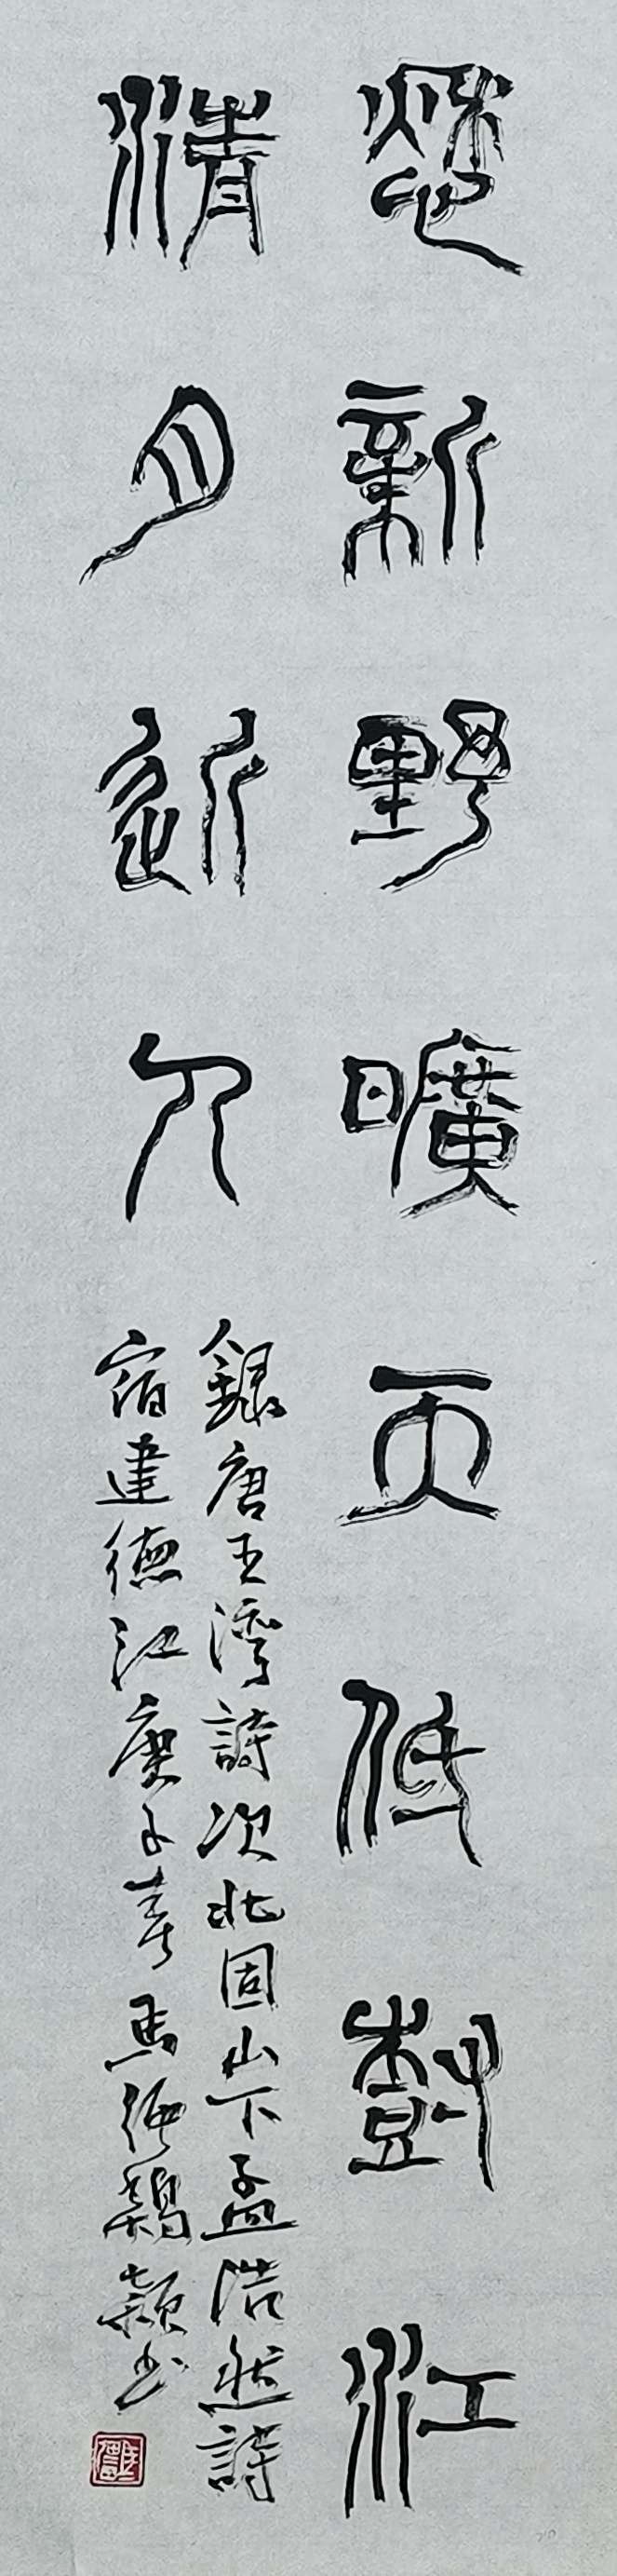 愁新野曠天低樹江
清月近人
錄唐王灣詩次北固山下孟浩然詩
宿建德江庚子春馬
書